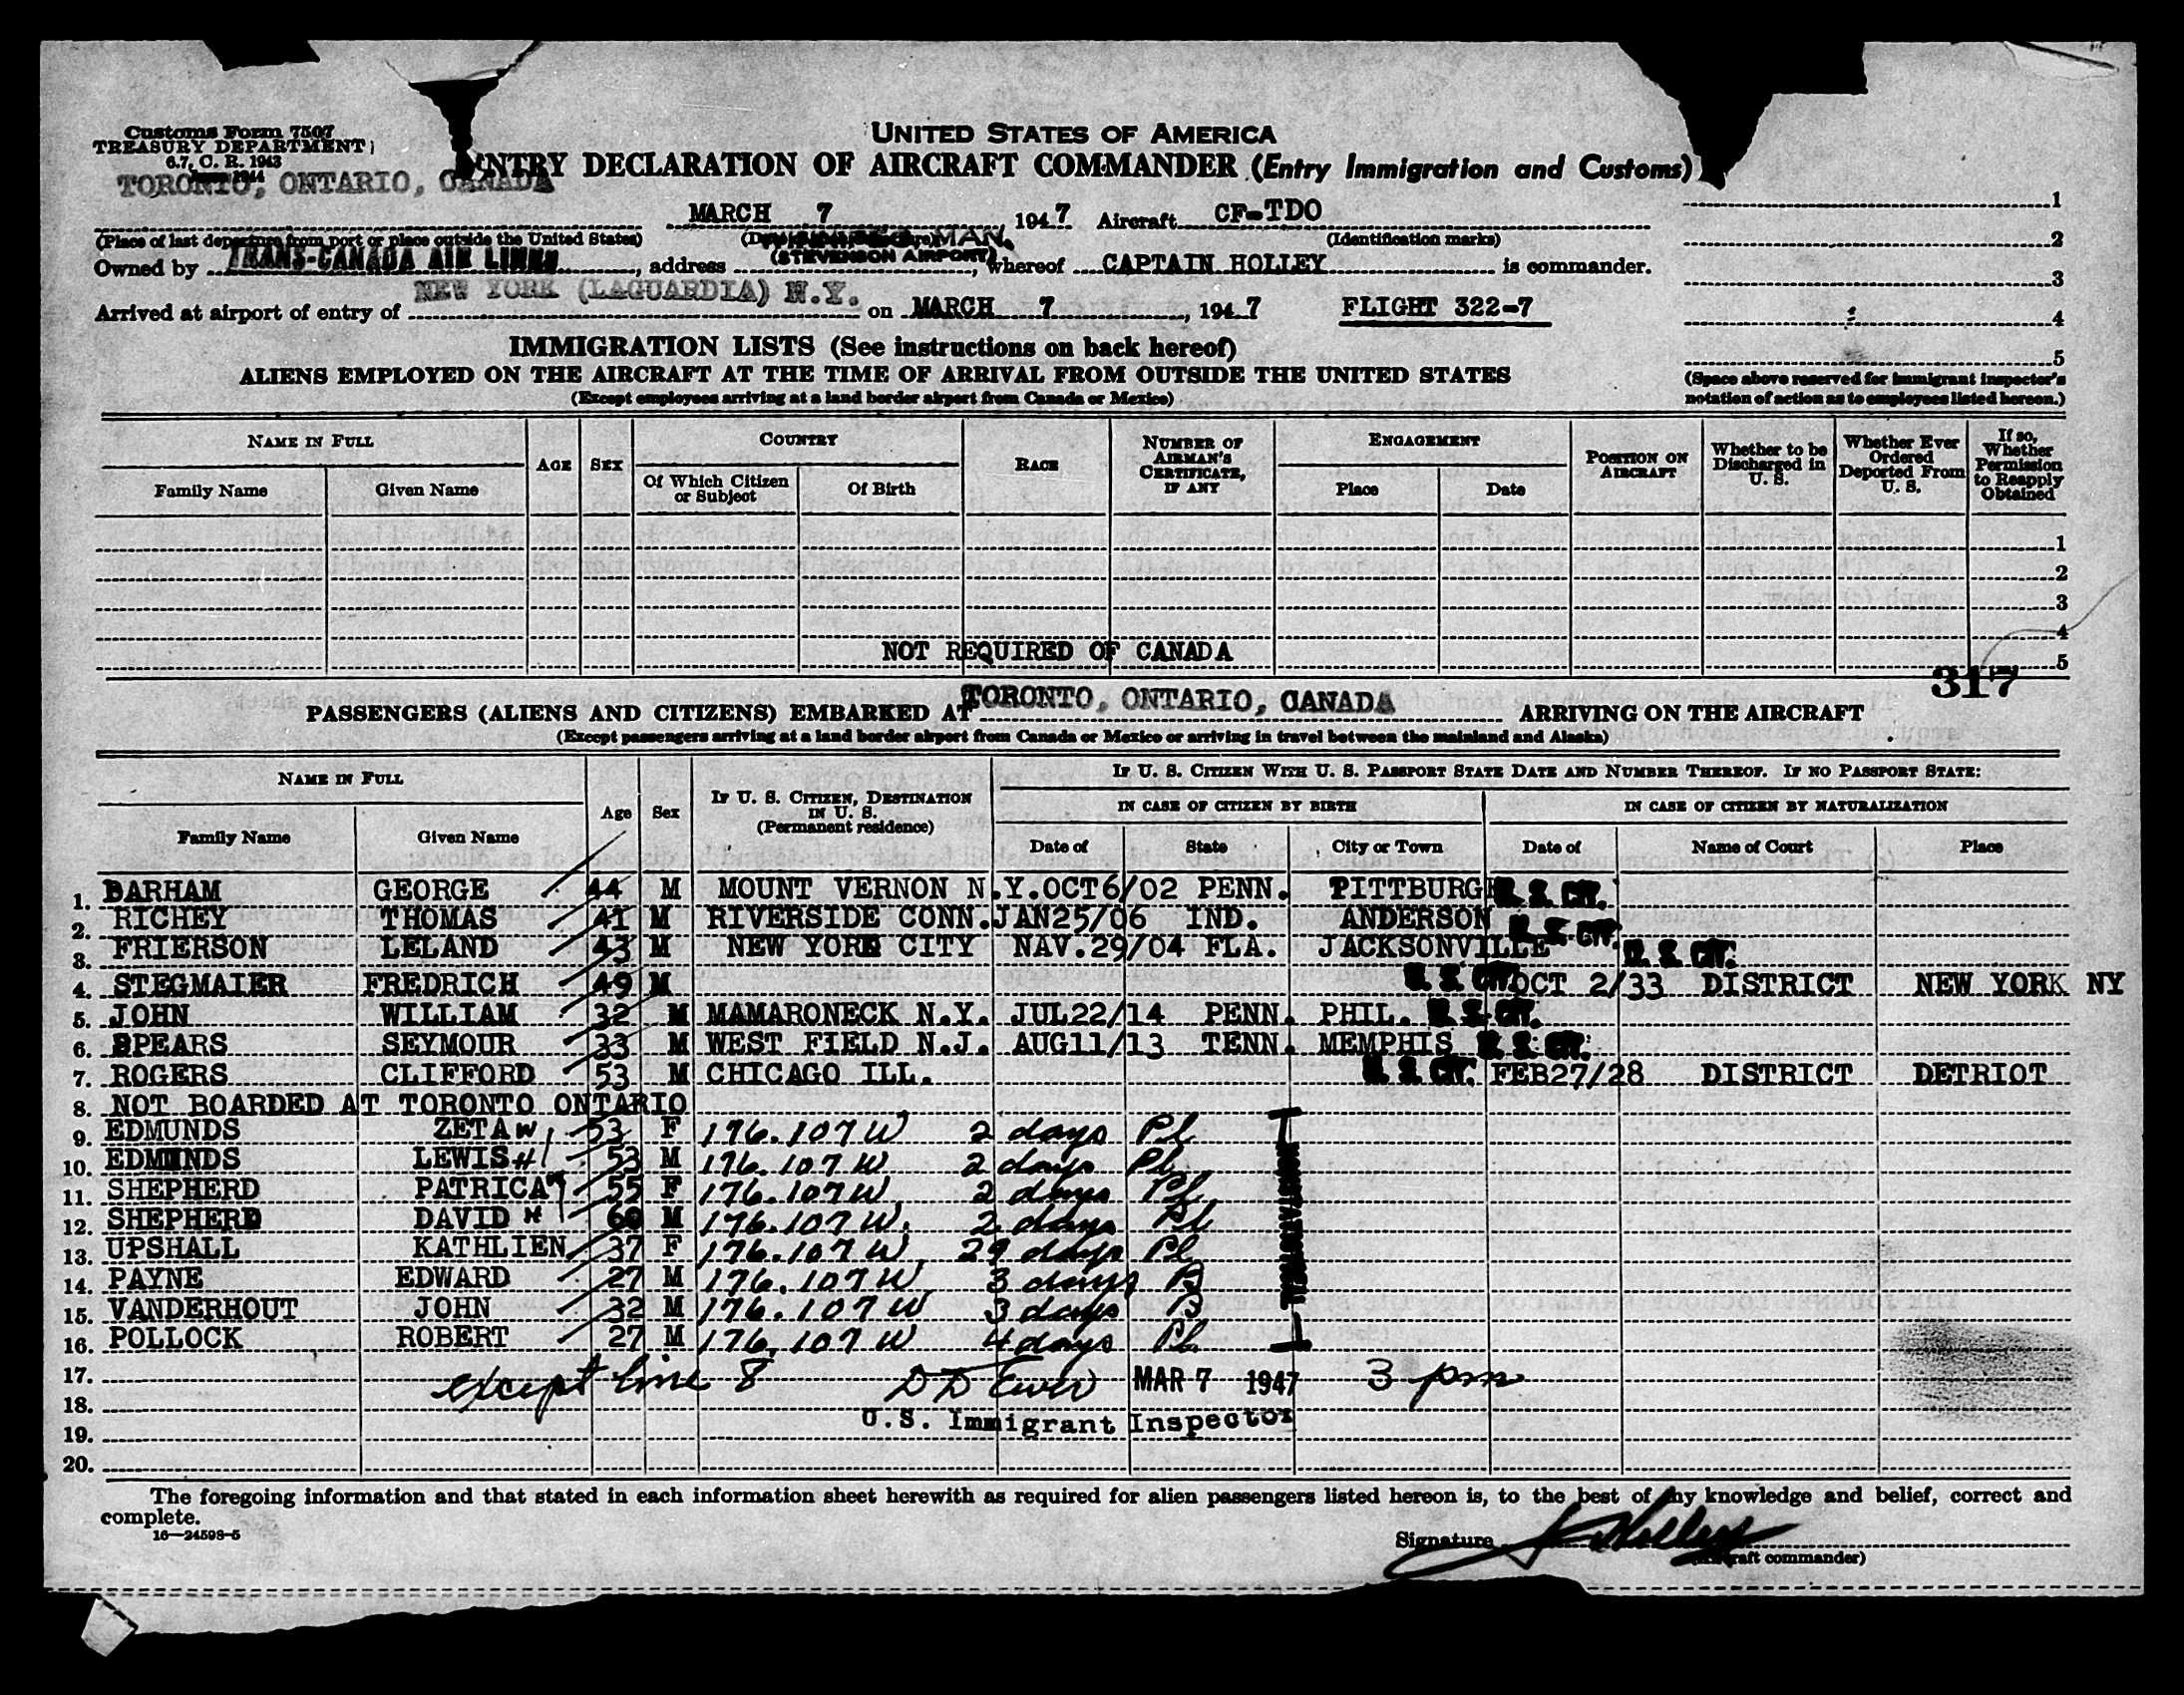 Customs Form 7507
TREASURY DEPARTMENT
6.7, C. R. 1943
June 1944
UNITED STATES OF AMERICA
ENTRY DECLARATION OF AIRCRAFT COMMANDER (Entry Immigration and Customs)
TORONTO, ONTARIO, CANADA
MARCH 7, 1947 Aircraft CF-TDO
(Place of last departure from port or place outside the United States) (Identification marks)
MAN.
(STEVENSON AIRPORT)
Owned by TRANS-CANADA AIR LINES, address, whereof CAPTAIN HOLLEY is commander.
Arrived at airport of entry of NEW YORK (LAGUARDIA) N.Y. on MARCH 7, 1947 FLIGHT 322-7
1
2
3
4
5
(Space above reserved for immigrant inspector's notation of action as to employees listed hereon.)
IMMIGRATION LISTS (See instructions on back hereof)
ALIENS EMPLOYED ON THE AIRCRAFT AT THE TIME OF ARRIVAL FROM OUTSIDE THE UNITED STATES
(Except employees arriving at a land border airport from Canada or Mexico)
NAME IN FULL AGE SEX COUNTRY RACE NUMBER OF AIRMAN'S CERTIFICATE, IF ANY ENGAGEMENT POSITION ON AIRCRAFT Whether to be Discharged in U. S. Whether Ever Ordered Deported From U. S. If so, Whether Permission to Reapply Obtained
Family Name Given Name Of Which Citizen or Subject Of Birth Place Date
1
2
3
4
NOT REQUIRED OF CANADA 5
317
PASSENGERS (ALIENS AND CITIZENS) EMBARKED AT TORONTO, ONTARIO, CANADA ARRIVING ON THE AIRCRAFT
(Except passengers arriving at a land border airport from Canada or Mexico or arriving in travel between the mainland and Alaska)
NAME IN FULL Age Sex IF U. S. CITIZEN, DESTINATION IN U. S. (Permanent residence) IF U. S. CITIZEN WITH U. S. PASSPORT STATE DATE AND NUMBER THEREOF. IF NO PASSPORT STATE:
IN CASE OF CITIZEN BY BIRTH IN CASE OF CITIZEN BY NATURALIZATION
Family Name Given Name Date of State City or Town Date of Name of Court Place
1. BARHAM GEORGE 44 M MOUNT VERNON N.Y. OCT6/02 PENN. PITTBURGH U. S. CIT.
2. RICHEY THOMAS 41 M RIVERSIDE CONN. JAN25/06 IND. ANDERSON U. S. CIT.
3. FRIERSON LELAND 43 M NEW YORK CITY NAV.29/04 FLA. JACKSONVILLE U. S. CIT.
4. STEGMAIER FREDRICH 49 M U. S. CIT. OCT 2/33 DISTRICT NEW YORK NY
5. JOHN WILLIAM 32 M MAMARONECK N.Y. JUL22/14 PENN. PHIL. U. S. CIT.
6. SPEARS SEYMOUR 33 M WEST FIELD N.J. AUG11/13 TENN. MEMPHIS U. S. CIT.
7. ROGERS CLIFFORD 53 M CHICAGO ILL. U. S. CIT. FEB27/28 DISTRICT DETRIOT
8. NOT BOARDED AT TORONTO ONTARIO
9. EDMUNDS ZETA W 53 F 176.107W 2 days Pl
10. EDMUNDS LEWIS H 53 M 176.107W 2 days Pl
11. SHEPHERD PATRICA 55 F 176.107W 2 days Pl
12. SHEPHERD DAVID 60 M 176.107W. 2 days Pl
13. UPSHALL KATHLIEN 37 F 176.107W 29 days Pl
14. PAYNE EDWARD 27 M 176.107W 3 days B
15. VANDERHOUT JOHN 32 M 176.107W 3 days B
16. POLLOCK ROBERT 27 M 176.107W 4 days Pl
17. except line 8 MAR 7 1947 3 pm
18. U.S. Immigrant Inspector
19.
20.
The foregoing information and that stated in each information sheet herewith as required for alien passengers listed hereon is, to the best of my knowledge and belief, correct and
complete.
16—24598-5
Signature Holley
(Aircraft commander)